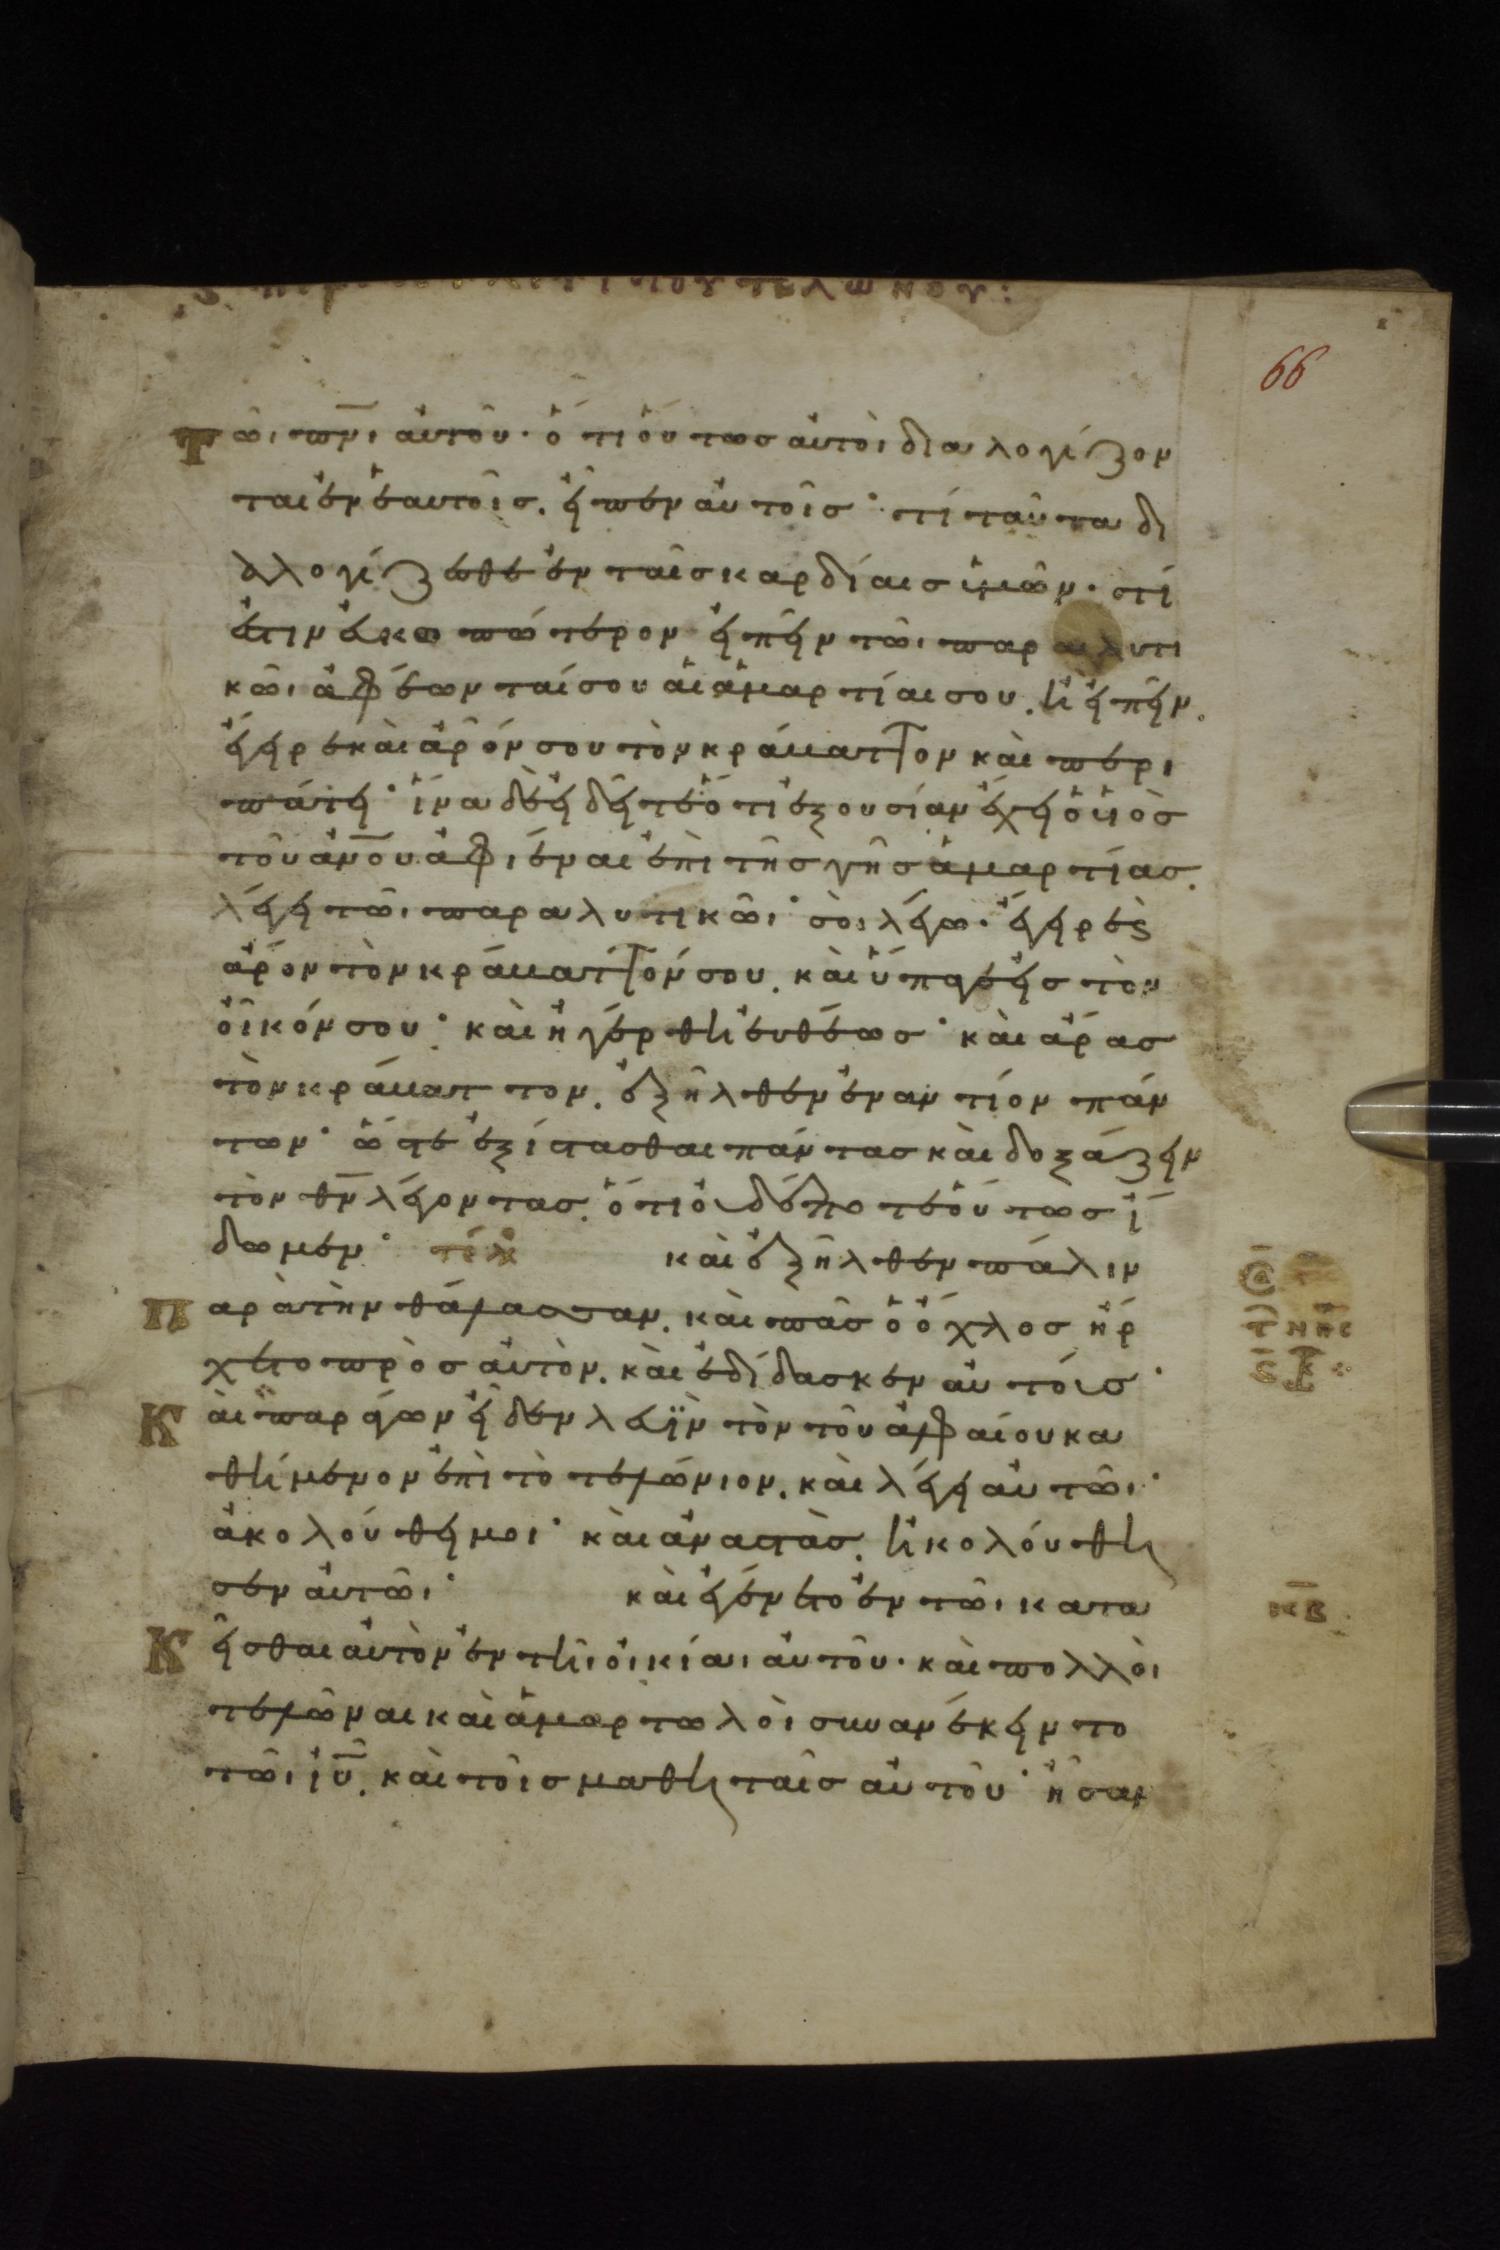 τοῦ τελώνου:
66
Τῶι πνι αὐτοῦ· ὅτι οὕτως αὐτοὶ διαλογίζον
ται ἐν ἑαυτοῖς. εἶπεν αὐτοῖς· τί ταῦτα δι
αλογίζεσθε ἐν ταῖς καρδίαις ὑμῶν· τί
ἐστιν εὐκοπώτερον εἰπεῖν τῶι παραλυτι
κῶι ἀφέωνταί σου αἱ ἁμαρτίαι σου. ἢ εἰπεῖν.
ἔγειρε καὶ ἆρόν σου τὸν κράβαττον καὶ περι
πάτει· ἵνα δὲ εἰδῆτε ὅτι ἐξουσίαν ἔχει ὁ υἱὸς
τοῦ ἀνου ἀφιέναι ἐπὶ τῆς γῆς ἁμαρτίας.
λέγει τῶι παραλυτικῶι· σοὶ λέγω· ἔγειρε καὶ
ἆρον τὸν κράβαττόν σου. καὶ ὕπαγε εἰς τὸν
οἶκόν σου· καὶ ἠγέρθη εὐθέως· καὶ ἄρας
τὸν κράβαττον. ἐξῆλθεν ἐναντίον πάν
των· ὥστε ἐξίστασθαι πάντας καὶ δοξάζειν
τὸν θν λέγοντας. ὅτι οὐδέποτε οὕτως εἴ
δωμεν· τέλ καὶ ἐξῆλθεν πάλιν
Παρὰ τὴν θάλασσαν. καὶ πᾶς ὁ ὄχλος ἤρ
χετο πρὸς αὐτὸν. καὶ ἐδίδασκεν αὐτούς·
Καὶ παράγων εἶδεν λευὶν τὸν τοῦ ἀλφαίου κα
θήμενον ἐπὶ τὸ τελώνιον. καὶ λέγει αὐτῶι·
ἀκολούθει μοι· καὶ ἀναστὰς. ἠκολούθη
σεν αὐτῶι· καὶ ἐγένετο ἐν τῶι κατα
Κεῖσθαι αὐτὸν ἐν τῆι οἰκίαι αὐτοῦ. καὶ πολλοὶ
τελῶναι καὶ ἁμαρτωλοὶ συνανέκειντο
τῶι ιυ. καὶ τοῖς μαθηταῖς αὐτοῦ· ἦσαν
κβ